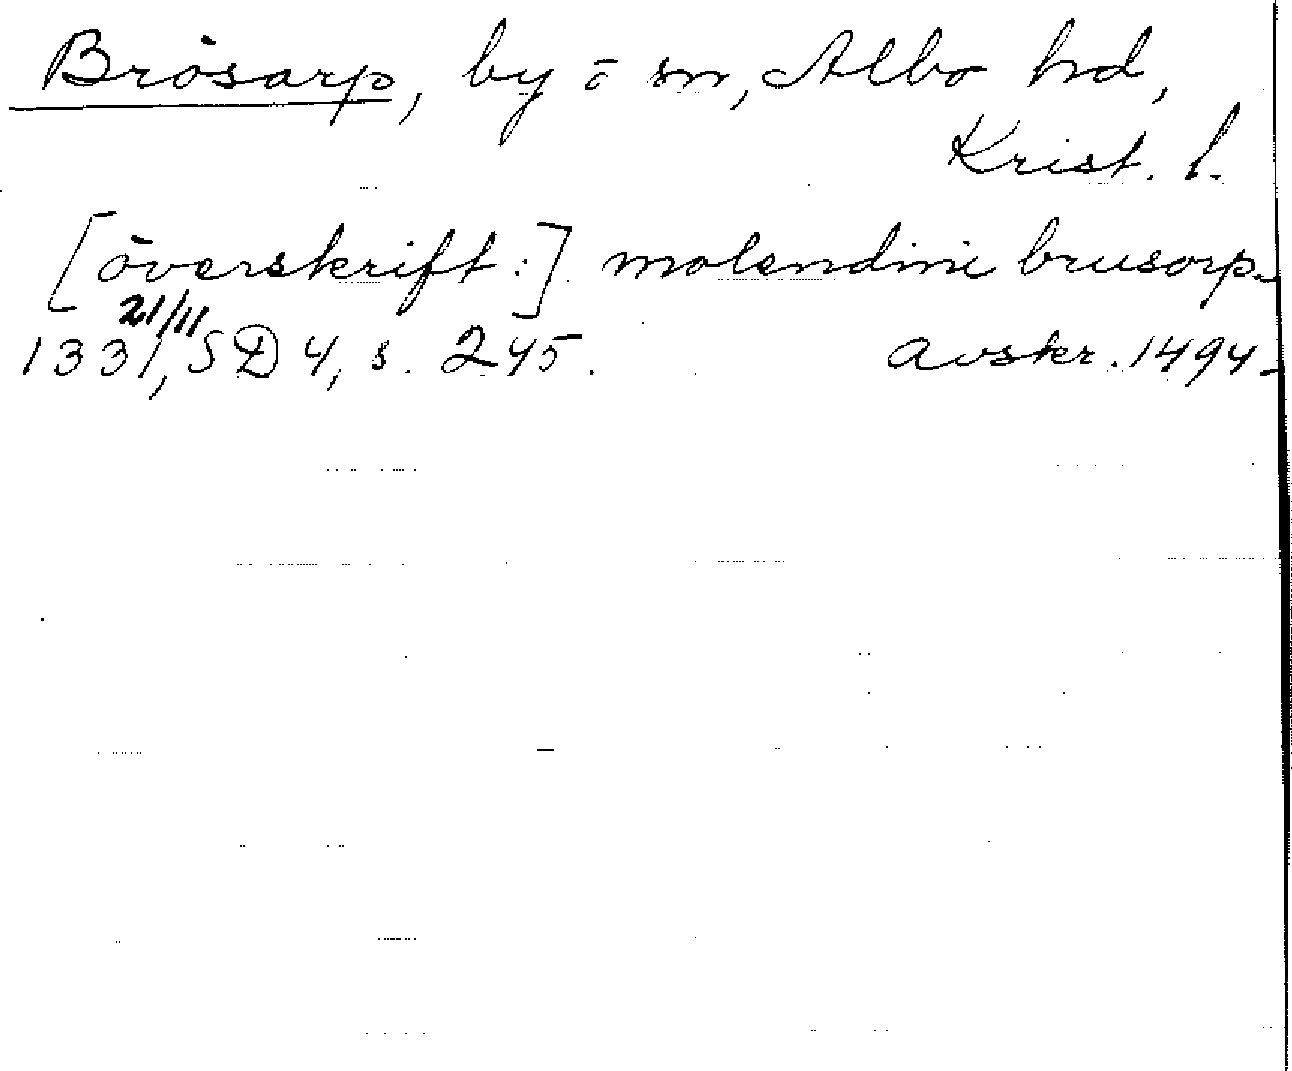 Brösarp, by o sn, Albo hd,
Krist. l.
[överskrift:] molendini brusorp
21/11
1331, SD 4, s. 245. Avskr. 1494.